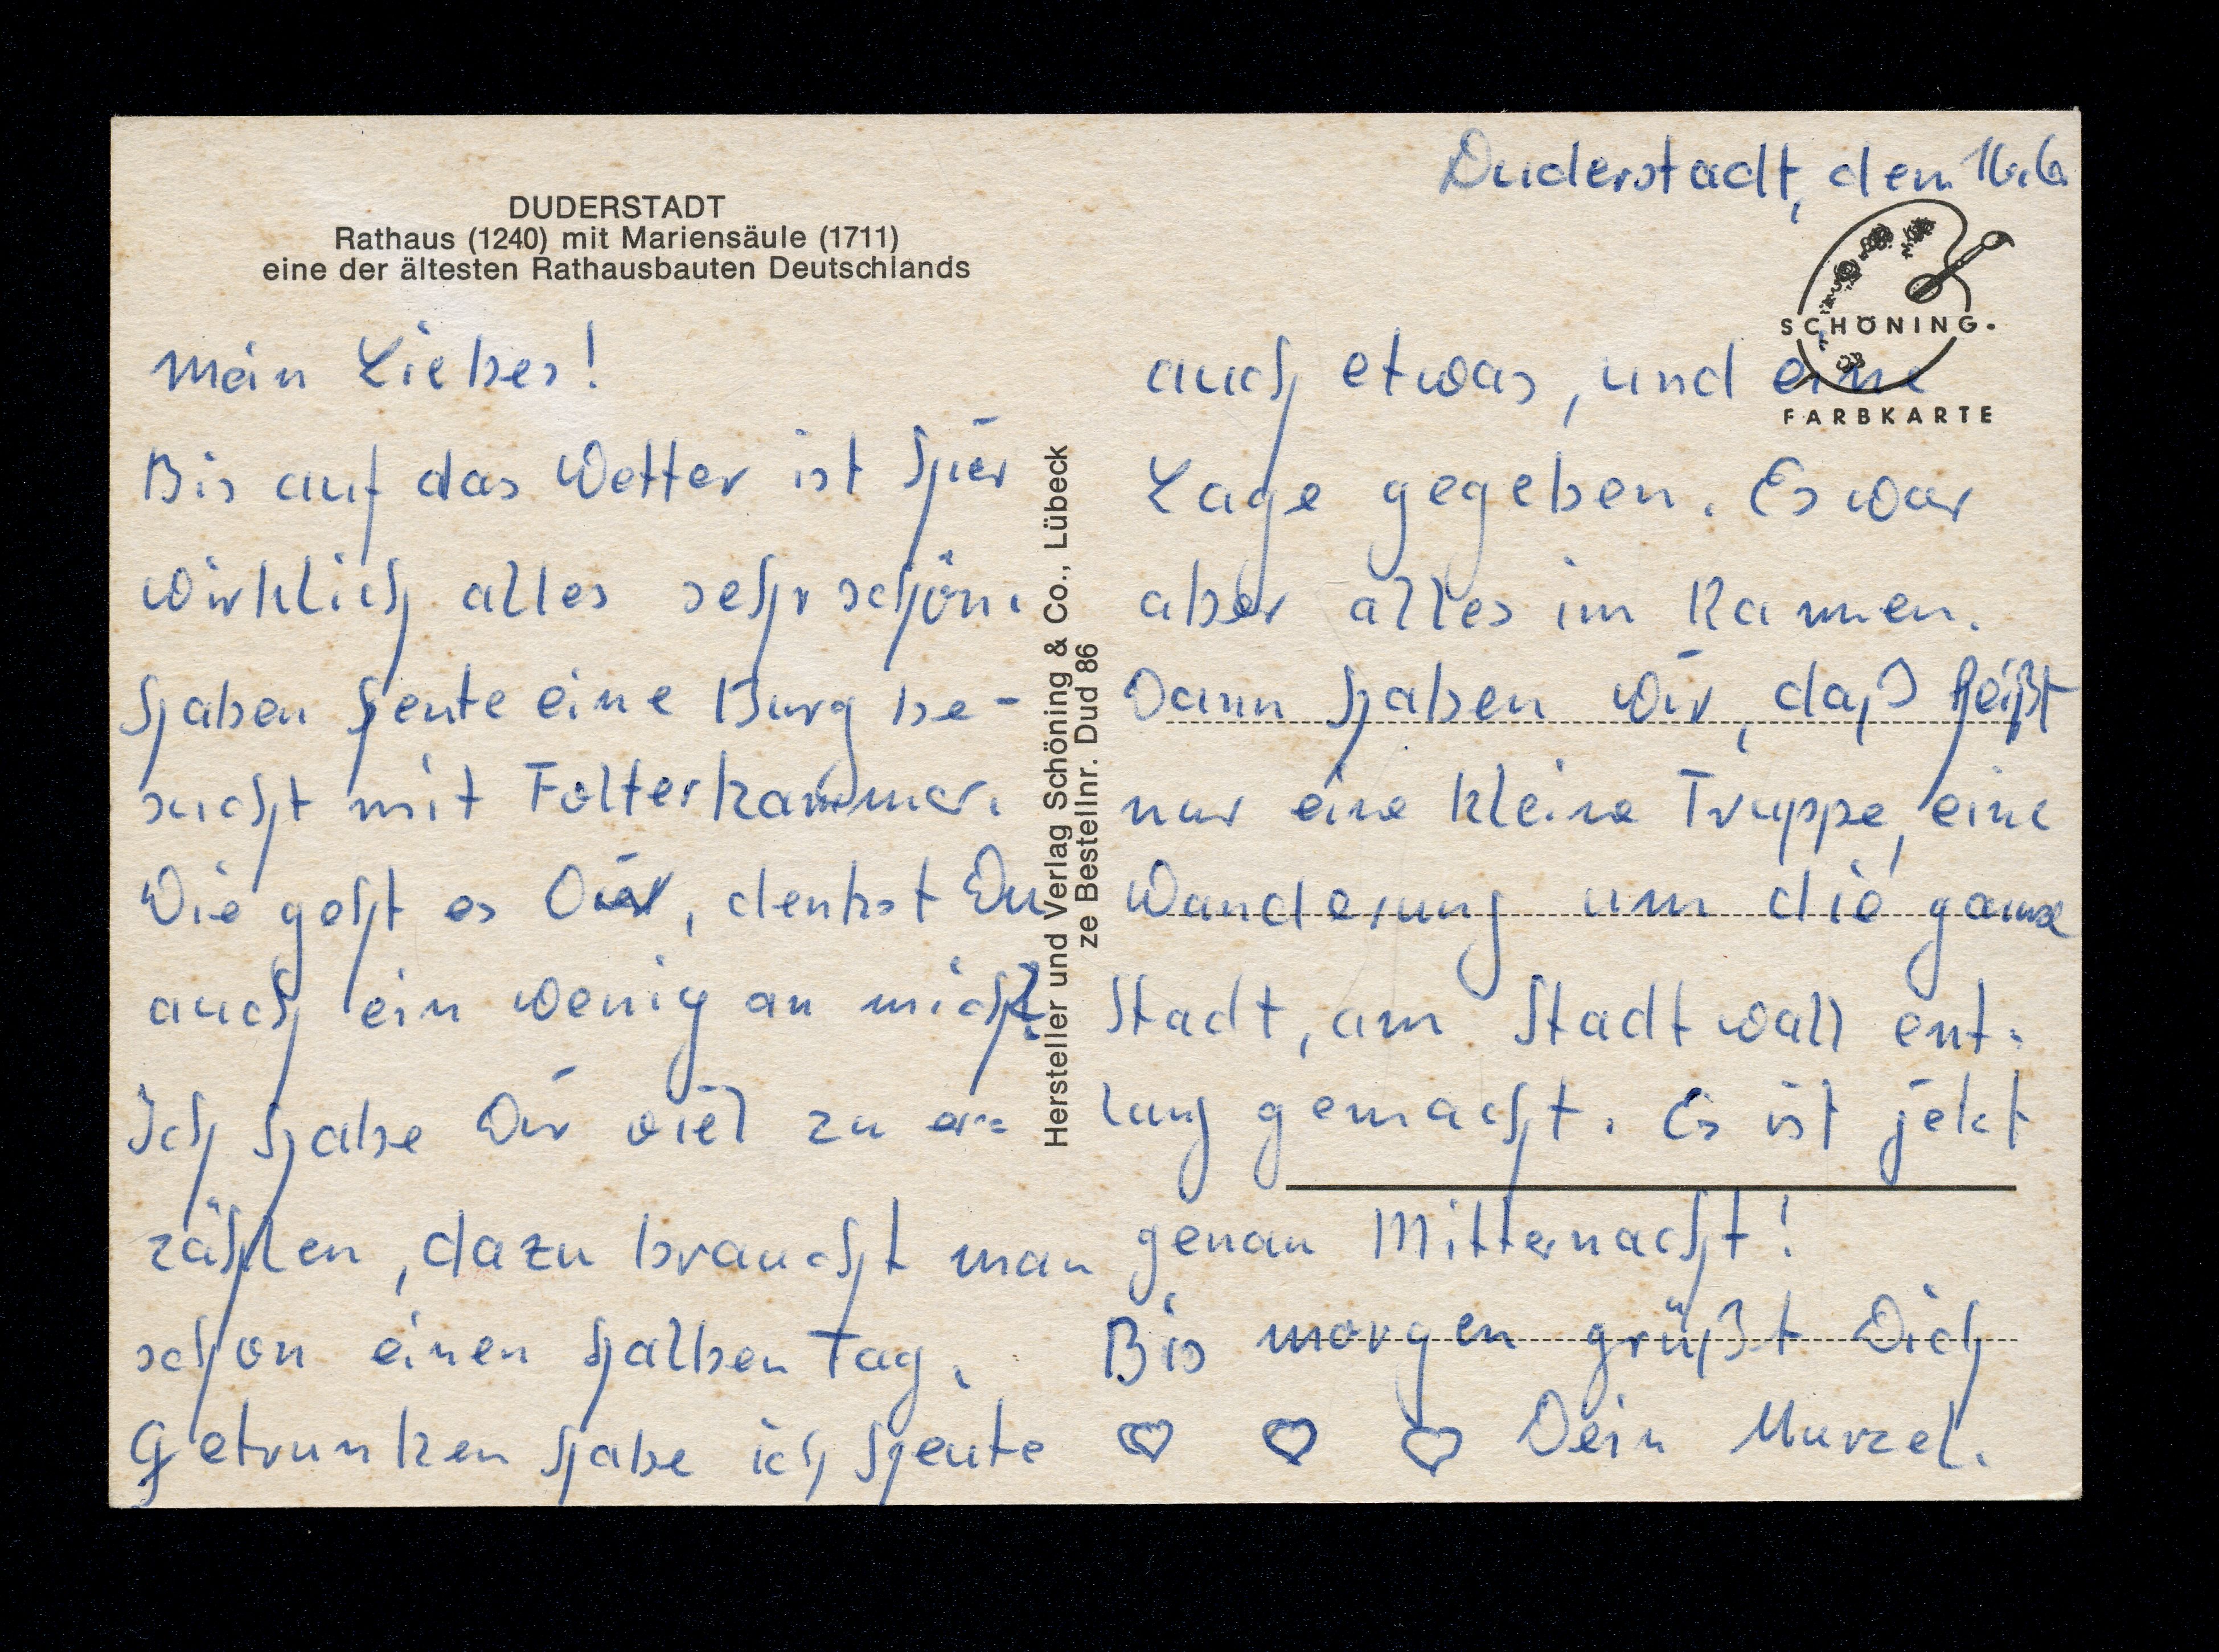 Duderstadt, den 16.6.
DUDERSTADT
Rathaus (1240) mit Mariensäule (1711)
eine der ältesten Rathausbauten Deutschlands
Mein Liebes!
Bis auf das Wetter ist hier
wirklich alles sehr schön.
Haben heute eine Burg be-
sucht mit Folterkammer.
Wie geht es Dir, denkst Du
auch ein wenig an mich?
Ich habe Dir viel zu er=
zählen, dazu braucht man
schon einen halben Tag.
Getrunken habe ich heute
Hersteller und Verlag Schöning & Co., Lübeck
ze Bestellnr. Dud 86
SCHÖNING.
FARBKARTE
auch etwas, und eine
Lage gegeben. Es war
aber alles im Ramen.
Dann haben wir, daß heißt
nur eine kleine Truppe, eine
Wanderung um die ganze
Stadt, am Stadtwall ent-
lang gemacht. Es ist jetzt
genau Mitternacht!
Bis morgen grüßt Dich
♡ ♡ ♡ Dein Murzel.